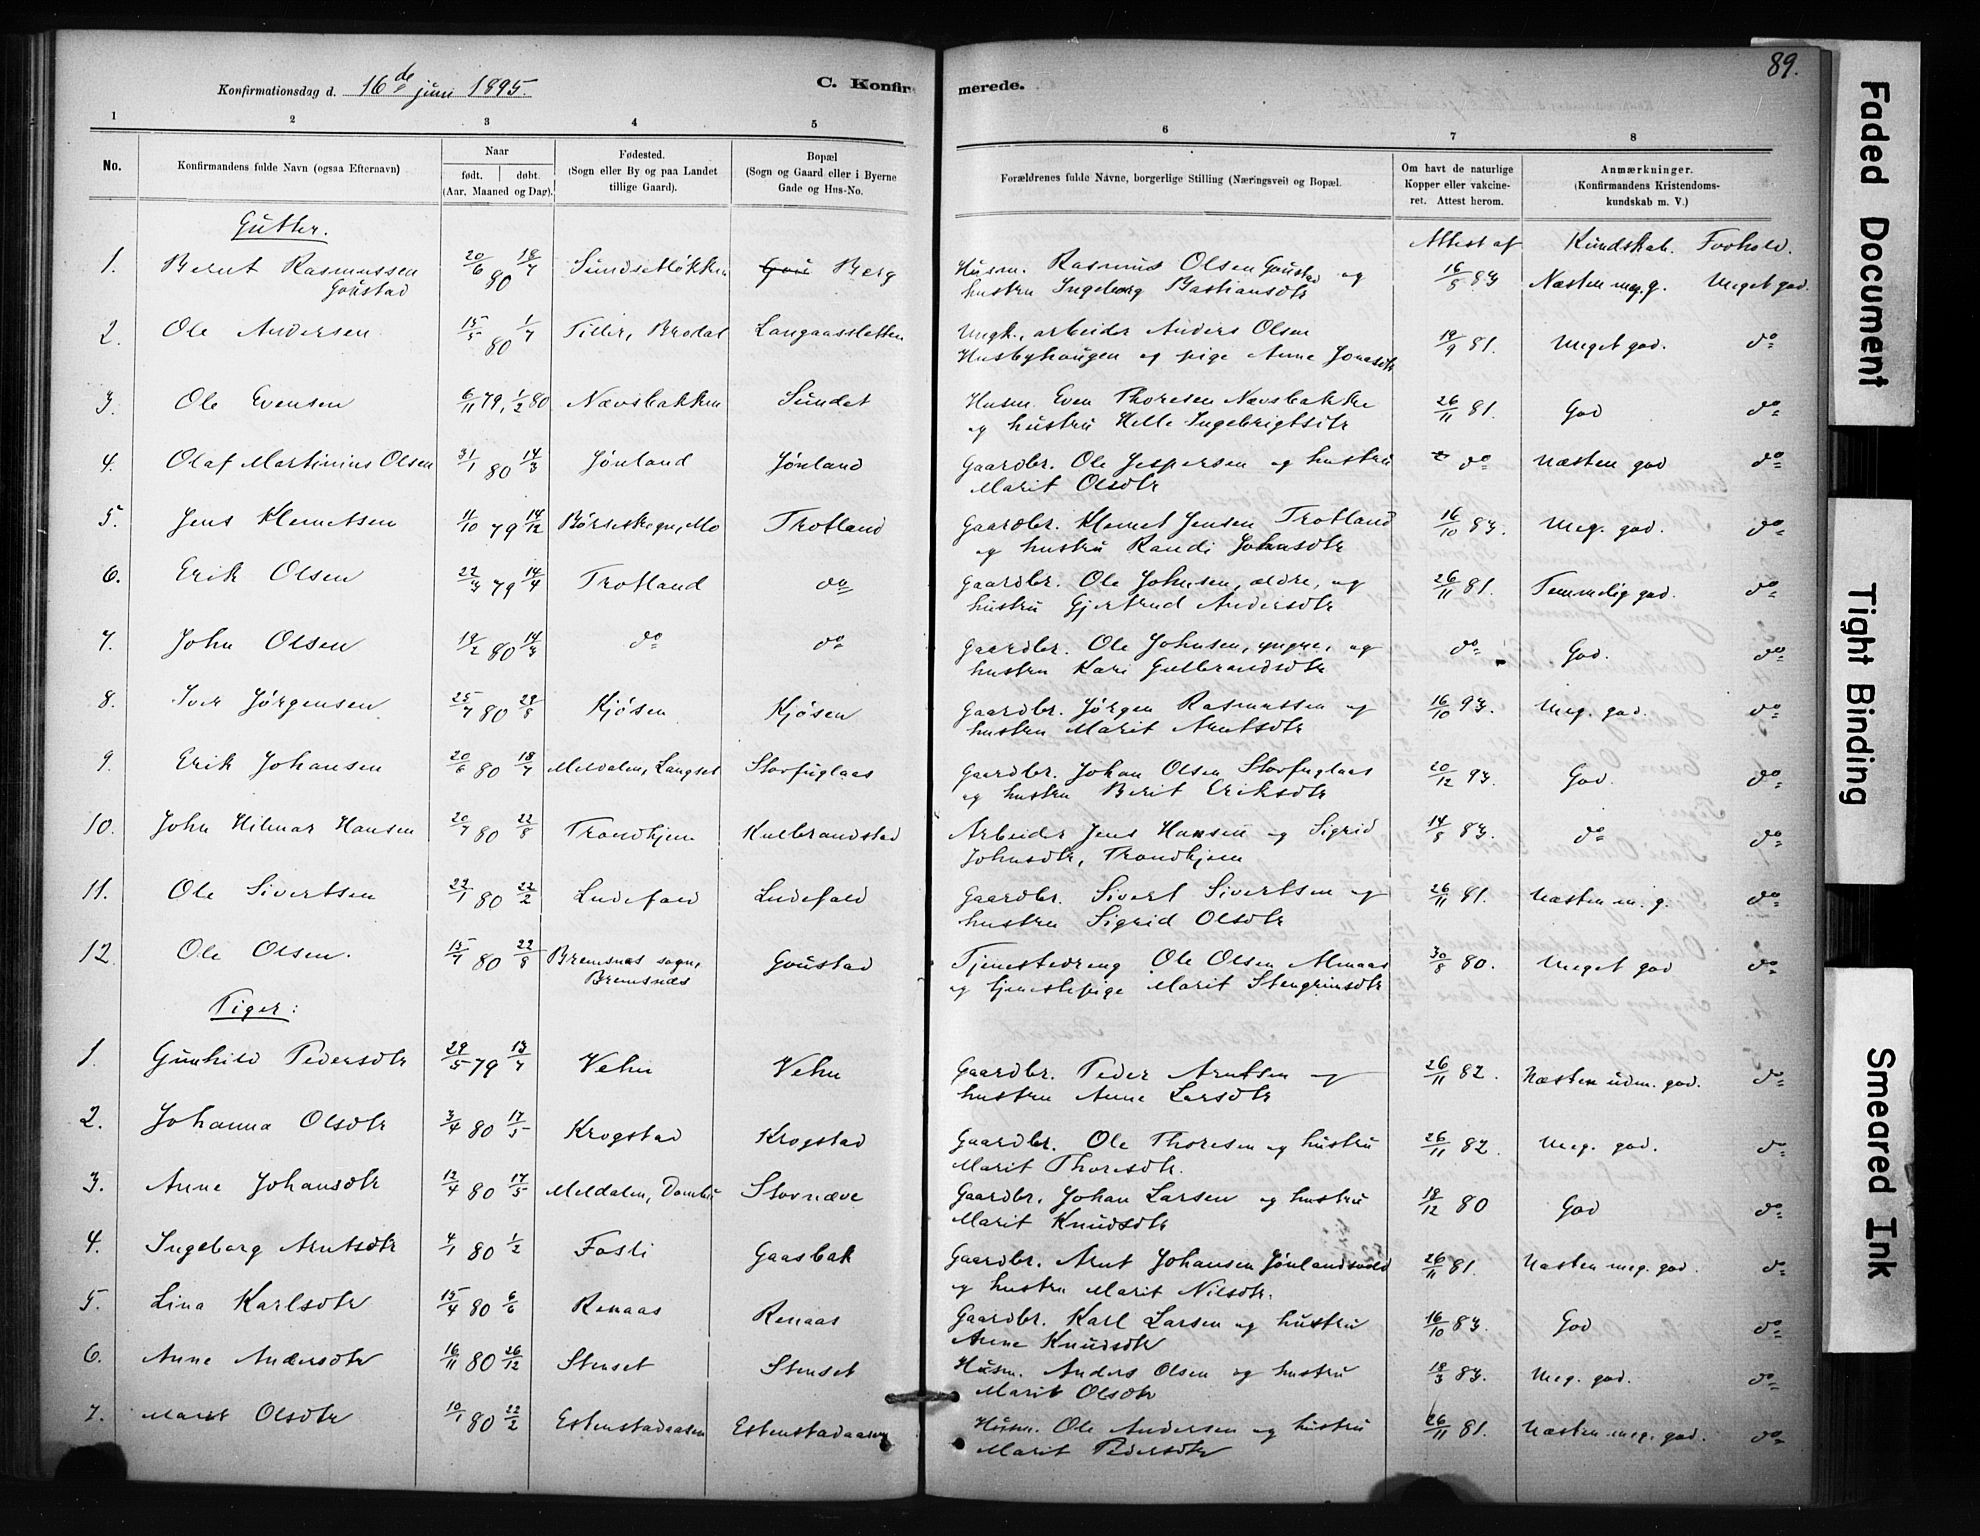 89.
Konfirmationsdag d. 16de juni 1895.
C. Konfirmerede.
1 2 3 4 5 6 7 8
No.
Konfirmandens fulde Navn (ogsaa Efternavn)
Naar
født. døbt.
(Aar. Maaned og Dag).
Fødested.
(Sogn eller By og paa Landet
tillige Gaard).
Bopæl
(Sogn og Gaard eller i Byerne
Gade og Hus-No.
Forældrenes fulde Navne, borgerlige Stilling (Næringsvei) og Bopæl.
Om havt de naturlige
Kopper eller vakcine-
ret. Attest herom.
Anmærkninger.
(Konfirmandens Kristendoms-
kundskab m. V.)
Gutter.
Attest af Kundskab. Forhold.
1. Bernt Rasmussen 20/6 80 18/7 Sundsetløkken Berg Husm. Rasmus Olsen Goustad og 16/8 83 Næsten meg. g. Meget god.
Goustad hustru Ingeborg Bastiansdtr
2. Ole Andersen 15/5 80 1/7 Tiller, Brodal Langaassletten Ungk., arbeider Anders Olsen 19/9 81. Meget god. do
Husbyhaugen og pige Anne Jonasdtr
3. Ole Evensen 6/11 79, 1/2 80 Nævsbakken Sundet Husm. Even Thoresen Nævsbakke 26/11 81. God do
og hustru Helle Ingebrigtsdtr
4. Olaf Martinius Olsen 31/1 80 14/3 Jønland Jønland Gaardbr. Ole Jespersen og hustru do Næsten god do
Marit Olsdtr
5. Jens Klemetsen 11/10 79 14/12 Børseskogn, Mo Trotland Gaardbr. Klemet Jensen Trotland 16/10 83. Meg. god. do
og hustru Randi Johnsdtr
6. Erik Olsen 22/3 79 14/4 Trotland do Gaardbr. Ole Johnsen, ældre, og 26/11 81. Temmelig god. do
hustru Gjertrud Andersdtr
7. John Olsen 19/2 80 14/3 do do Gaardbr. Ole Johnsen, yngre, og do God. do
hustru Kari Gulbrandsdtr
8. Iver Jørgensen 25/7 80 29/8 Kjøsen Kjøsen Gaardbr. Jørgen Rasmussen og 16/10 93. Meg. god. do
hustru Marit Arntsdtr
9. Erik Johansen 20/6 80 18/7 Meldalen, Langset Storfuglaas Gaardbr. Johan Olsen Storfuglaas 20/12 93. God. do
og hustru Berit Eriksdtr
10. John Hilmar Hansen 20/7 80 22/8 Trondhjem Kulbrandstad Arbeider Jens Hansen og Sigrid 14/8 83. do do
Johnsdtr, Trondhjem
11. Ole Sivertsen 22/1 80 22/2 Ludefald Ludefald Gaardbr. Sivert Sivertsen og 26/11 81. Næsten m. g. do
hustru Sigrid Olsdtr
12 Ole Olsen. 15/7 80 22/8 Bremsnes sogn, Goustad Tjenestedreng Ole Olsen Almaas 30/8 80. Meget god do
Bremsnes og tjenestepige Marit Stengrimsdtr
Piger:
1. Gunhild Pedersdtr 29/5 79 13/7 Vehn Vehn Gaardbr. Peder Arntsen og 26/11 82. Næsten udm. god. do
hustru Anne Larsdtr
2. Johanna Olsdtr 3/4 80 17/5 Krogstad Krogstad Gaardbr. Ole Thoresen og hustru 26/11 82 Meg. god. do
Marit Thoresdtr.
3. Anne Johansdtr 12/4 80 17/5 Meldalen, Dombu Stornæve Gaardbr. Johan Larsen og hustru 18/12 80 God do
Marit Knudsdtr
4. Ingeborg Arntsdtr 4/1 80 1/2 Fosli Gaasbak Gaardbr. Arnt Johansen Jønlandsvold 26/11 81. Næsten meg. god. do
og hustru Marit Nilsdtr.
5. Lina Karlsdtr 15/4 80 6/6 Renaas Renaas Gaardbr. Karl Larsen og hustru 16/10 83. God do
Anne Knudsdtr
6. Anne Andersdtr 16/11 80 26/12 Stenset Stenset Husm. Anders Olsen og hustru 18/3 83. Meg. god. do
Marit Olsdtr
7. Marit Olsdtr 10/1 80 22/2 Estenstadaasen Estenstadaasen Husm. Ole Andersen og hustru 26/11 81. Næsten meg. god. do
Marit Pedersdtr
Faded Document
Tight Binding
Smeared Ink